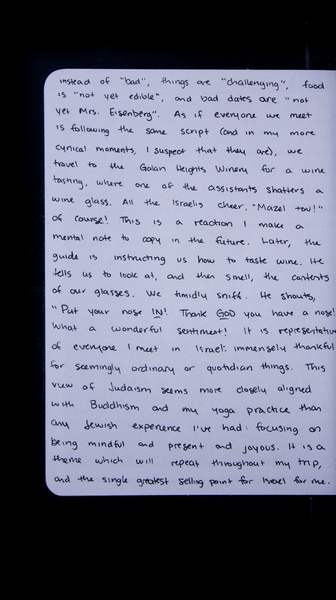 instead of "bad", things are "challenging", food
is "not yet edible", and bad dates are "not
yet Mrs. Eisenberg". As if everyone we meet
is following the same script (and in my more
cynical moments, I suspect that they are), we
travel to the Golan Heights Winery for a wine
tasting, where one of the assistants shatters a
wine glass. All the Israelis cheer, "Mazel tov!"
of course! This is a reaction I make a
mental note to copy in the future. Later, the
guide is instructing us how to taste wine. He
tells us to look at, and then smell, the contents
of our glasses. We timidly sniff. He shouts,
"Put your nose IN! Thank GOD you have a nose!
What a wonderful sentiment! It is representative
of everyone I meet in Israel: immensely thankful
for seemingly ordinary or quotidian things. This
view of Judaism seems more closely aligned
with Buddhism and my yoga practice than
any Jewish experience I've had: focusing on
being mindful and present and joyous. It is a
theme which will repeat throughout my trip,
and the single greatest selling point for Israel for me.